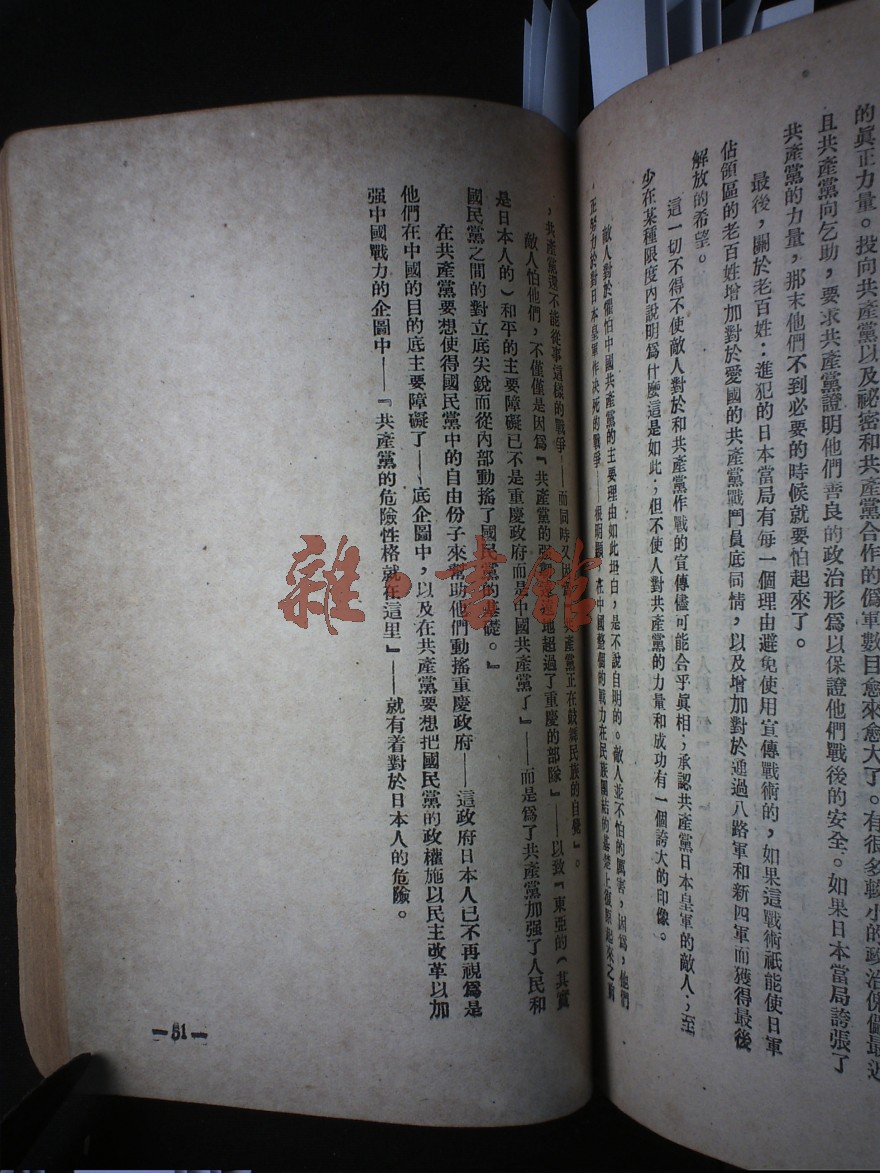 的眞正力量。投向共產黨以及祕密和共產黨合作的僞軍數目愈來愈大了。有很多較小的政治傀儡最近
且共產黨向乞助，要求共產黨證明他們善良的政治形爲以保證他們戰後的安全。如果日本當局誇張了
共產黨的力量，那末他們不到必要的時候就要怕起來了。
最後，關於老百姓：進犯的日本當局有每一個理由避免使用宣傳戰術的，如果這戰術祇能使日軍
佔領區的老百姓增加對於愛國的共產黨戰鬥員底同情，以及增加對於通過八路軍和新四軍而獲得最後
解放的希望。
這一切不得不使敵人對於和共產黨作戰的宣傳儘可能合乎眞相；承認共產黨日本皇軍的敵人；至
少在某種限度內說明爲什麼這是如此；但不使人對共產黨的力量和成功有一個誇大的印像。
敵人對於懼怕中國共產黨的主要理由如此坦白，是不說自明的。敵人並不怕的厲害，因爲，他們
正努力於對日本皇軍作決死的戰爭——很明顯，在中國整個的戰力在民族團結的基礎上復原起來之前
，共產黨還不能從事這樣的戰爭——而同時又因 共產黨正在鼓舞民族的自覺』。
敵人怕他們，不僅僅是因爲『共產黨的 地超過了重慶的部隊』——以致『東亞的（其實
是日本人的）和平的主要障礙已不是重慶政府而是中國共產黨了』——而是爲了共產黨加强了人民和
國民黨之間的對立底尖銳而從內部動搖了國民黨的基礎。』
在共產黨要想使得國民黨中的自由份子來幫助他們動搖重慶政府——這政府日本人已不再視爲是
他們在中國的目的底主要障礙了——底企圖中，以及在共產黨要想把國民黨的政權施以民主改革以加
强中國戰力的企圖中——『共產黨的危險性格就在這里』——就有着對於日本人的危險。
—81—
雜·書館